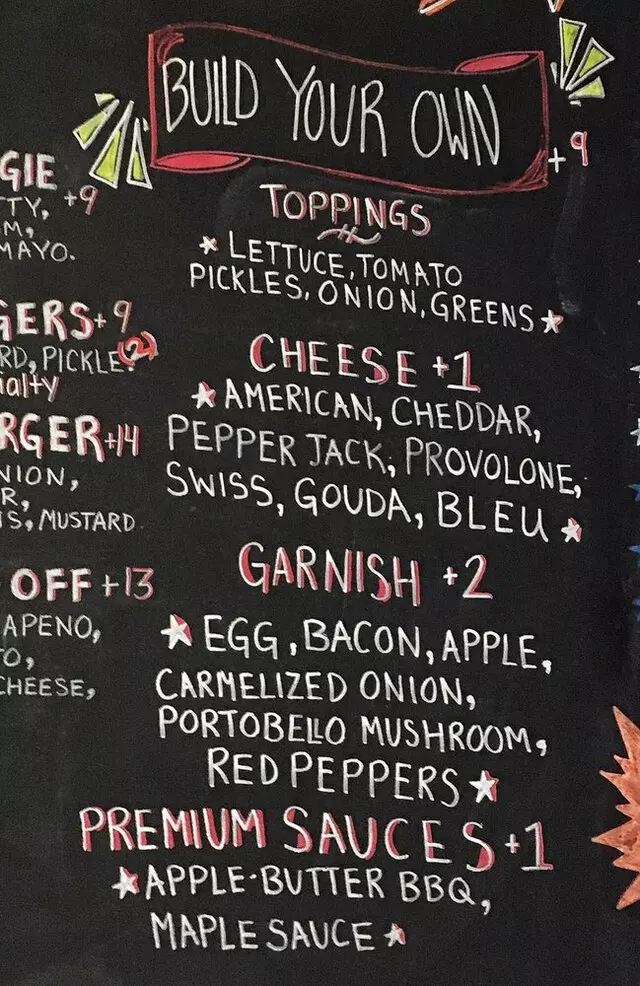 BUILD YOUR OWN
+9
TOPPINGS
LETTUCE, TOMATO
PICKLES, ONION, GREENS
CHEESE +1
AMERICAN, CHEDDAR,
PEPPER JACK, PROVOLONE,
SWISS, GOUDA, BLEU
GARNISH +2
EGG, BACON, APPLE,
CARMELIZED ONION,
PORTOBELLO MUSHROOM,
RED PEPPERS
PREMIUM SAUCES +1
APPLE-BUTTER BBQ,
MAPLE SAUCE
GIE
TY, +9
M,
MAYO.
GERS +9
RD, PICKLE. (2)
ialty
RGER +14
NION,
R,
S, MUSTARD.
OFF +13
APENO,
O,
CHEESE,